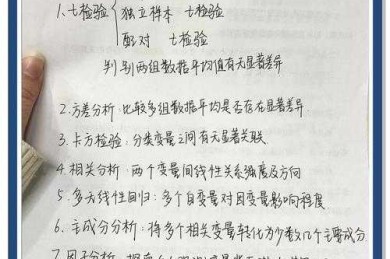 1. t检验 { 独立样本 t检验
配对 t检验
判别两组数据平均值有无显著差异
2. 方差分析：比较多组数据平均是否存在显著差异
3. 卡方检验：分类变量之间有无显著关联
4. 相关分析：两个变量间线性关系强度及方向
5. 多元线性回归：多个自变量对因变量影响程度
6. 主成分分析：将多个相关变量转化为少数几个主要成分
7. 因子分析：